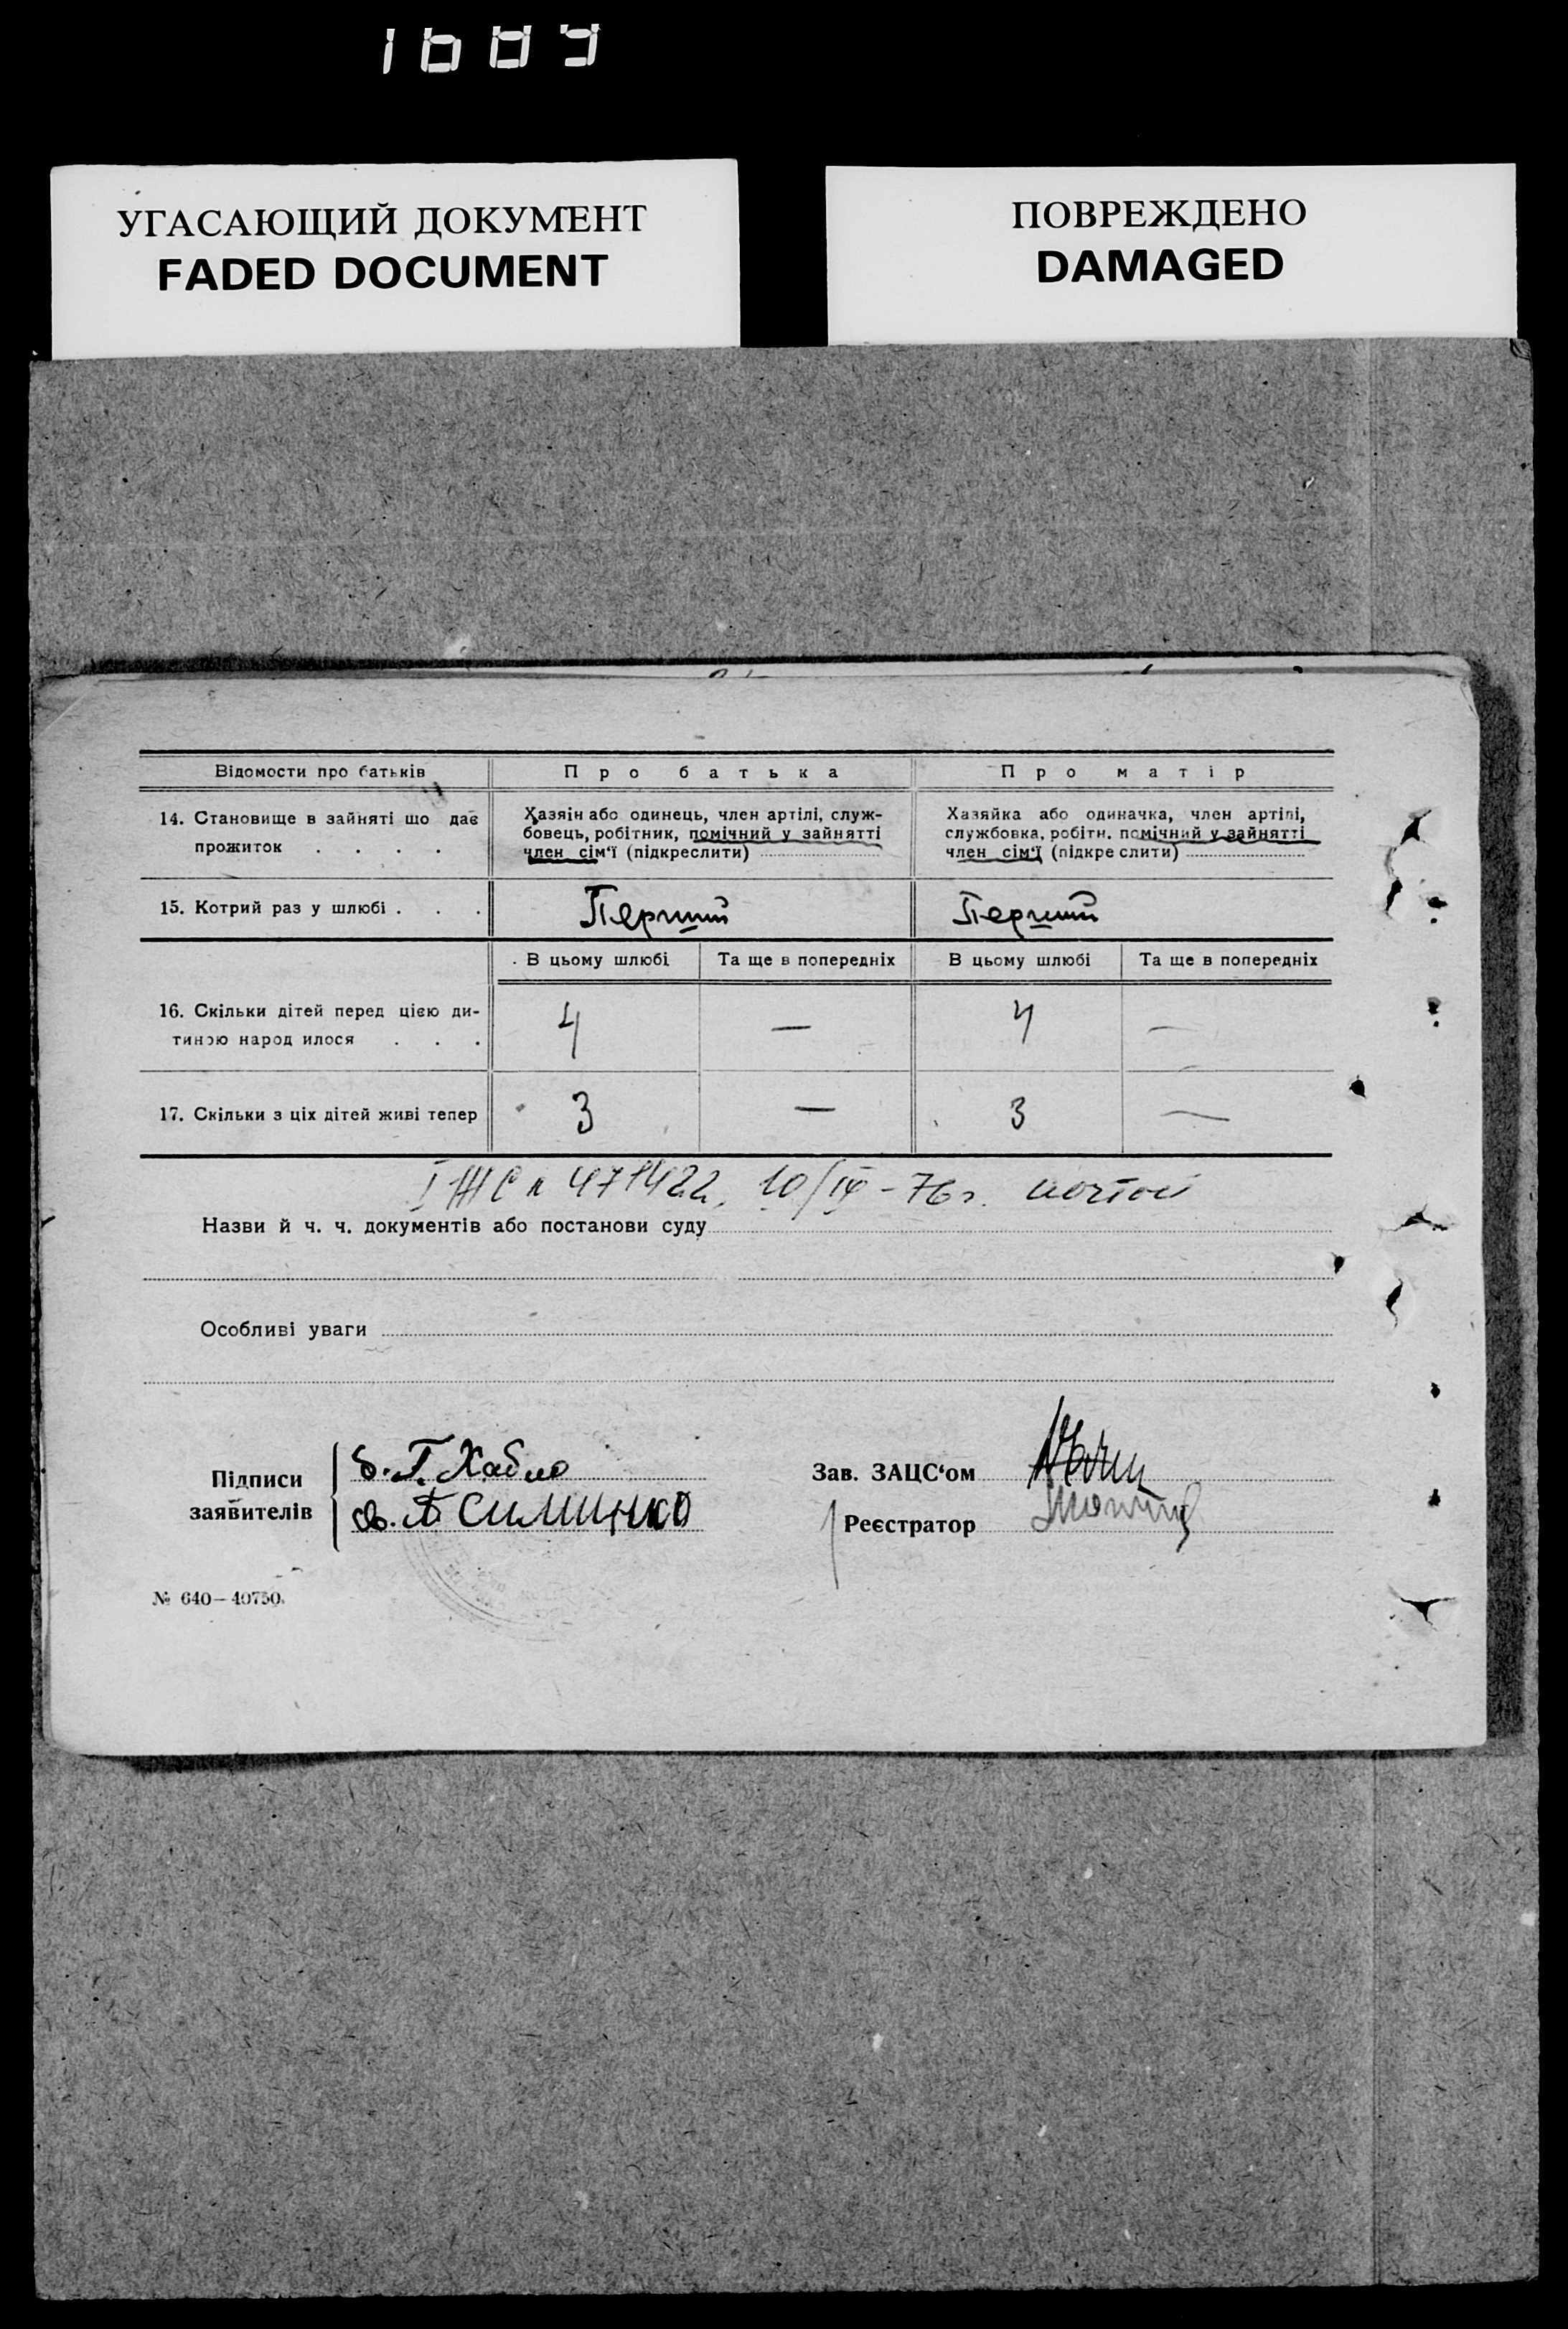 1609
УГАСАЮЩИЙ ДОКУМЕНТ
FADED DOCUMENT
ПОВРЕЖДЕНО
DAMAGED
Відомости про батьків
Про батька
Про матір
14. Становище в зайняті що дає
прожиток . . . .
Хазяїн або одинець, член артілі, служ-
бовець, робітник, помічний у зайнятті
член сім'ї (підкреслити)
Хазяйка або одиначка, член артілі,
службовка, робітн. помічний у зайнятті
член сім'ї (підкреслити)
15. Котрий раз у шлюбі . . .
Перший
Перший
В цьому шлюбі
Та ще в попередніх
В цьому шлюбі
Та ще в попередніх
16. Скільки дітей перед цією ди-
тиною народилося . . .
4
—
4
—
17. Скільки з ціх дітей живі тепер
3
—
3
—
10/IX - 76 г.
Назви й ч. ч. документів або постанови суду
Особливі уваги
Підписи
заявителів
Зав. ЗАЦС‘ом
Реєстратор
№ 640—40750.